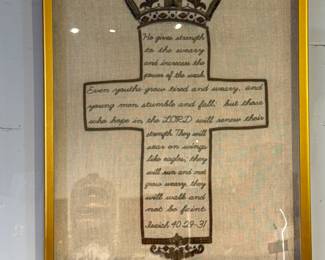 He gives strength
to the weary
and increases the
power of the weak.
Even youths grow tired and weary, and
young men stumble and fall; but those
who hope in the LORD will renew their
strength. They will
soar on wings
like eagles; they
will run and not
grow weary, they
will walk and
not be faint.
Isaiah 40:29-31